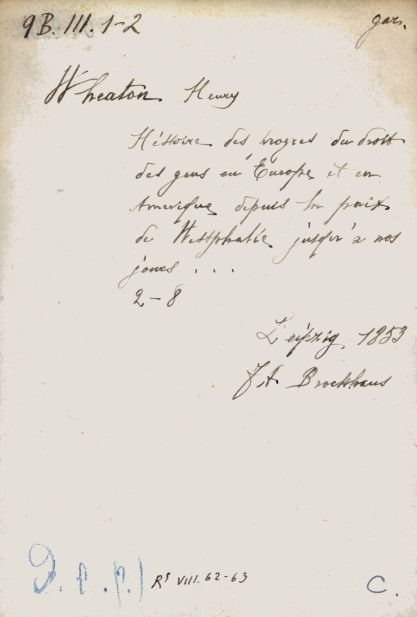 9B. III. 1-2
gar.
Wheaton Henry
Histoire des progres du droit
des gens en Europe et en
Amerique depuis la paix
de Westphalie jusqu'a nos
jours ...
2-8
Leipzig, 1853
F.A. Brockhaus
Rs VIII. 62-63
C.